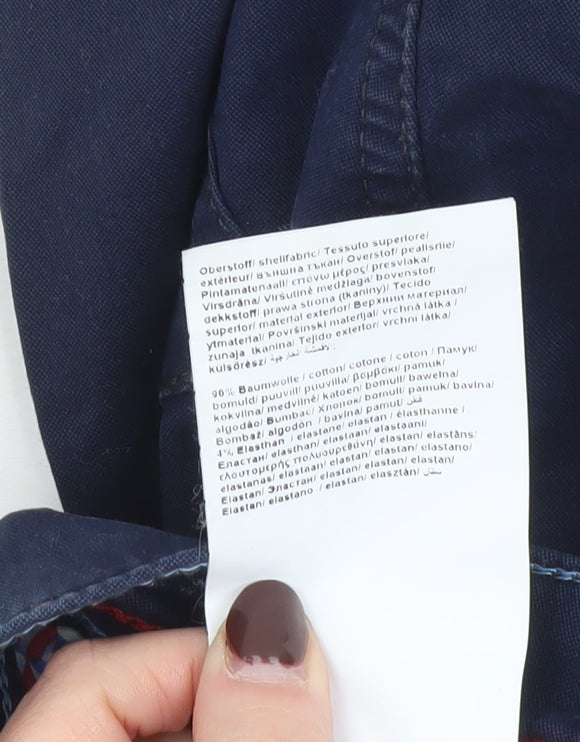 Oberstoff/ shellfabric/ Tessuto superiore/
extérieur/ външна тъкан/ Overstof/ pealisriie/
Pintamateriaali/ επάνω μέρος/ presvlaka/
Virsdrāna/ Viršutinė medžiaga/ bovenstof/
dekkstoff/ prawa strona (tkaniny)/ Tecido
superior/ material exterior/ Верхний материал/
ytmaterial/ Površinski material/ vrchná látka /
zunaja tkanina/ Tejido exterior/ vrchní látka/
külsőrész/ الأقمشة الخارجية :
96% Baumwolle / cotton/ cotone / coton / Памук/
bomuld/ puuvill/ puuvilla/ βαμβάκι/ pamuk/
kokvilna/ medvilnė/ katoen/ bomull/ bawełna/
algodão/ Bumbac/ Хлопок/ bomull/ pamuk/ bavlna/
Bombaž/ algodón / bavlna/ pamut/ قطن
4% Elasthan / elastane/ elastan / élasthanne /
Еластан/ elasthan/ elastaan/ elastaani/
ελαστομερής πολυουρεθάνη/ elastan/ elastāns/
elastanas/ elastaan/ elastan/ elastan/ elastano/
Elastan/ Эластан/ elastan/ elastan/ elastan/
Elastan/ elastano / elastan/ elasztán/